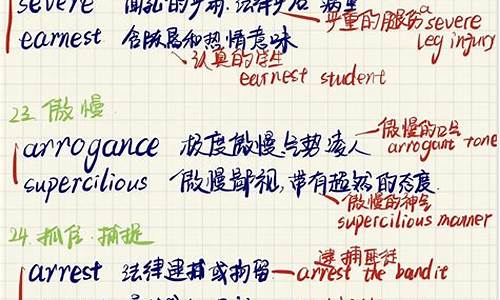 severe
严重的腿伤 a severe leg injury
earnest 含
和热情意味
认真的学生
earnest student
23. 傲慢
arrogance 极度傲慢, 气势凌人
傲慢的口气
arrogant tone
supercilious 傲慢鄙视, 带有超然的态度.
傲慢的神气
supercilious manner
24. 抓住. 捕捉
arrest 法律逮捕或拘留
逮捕匪徒
arrest the bandit